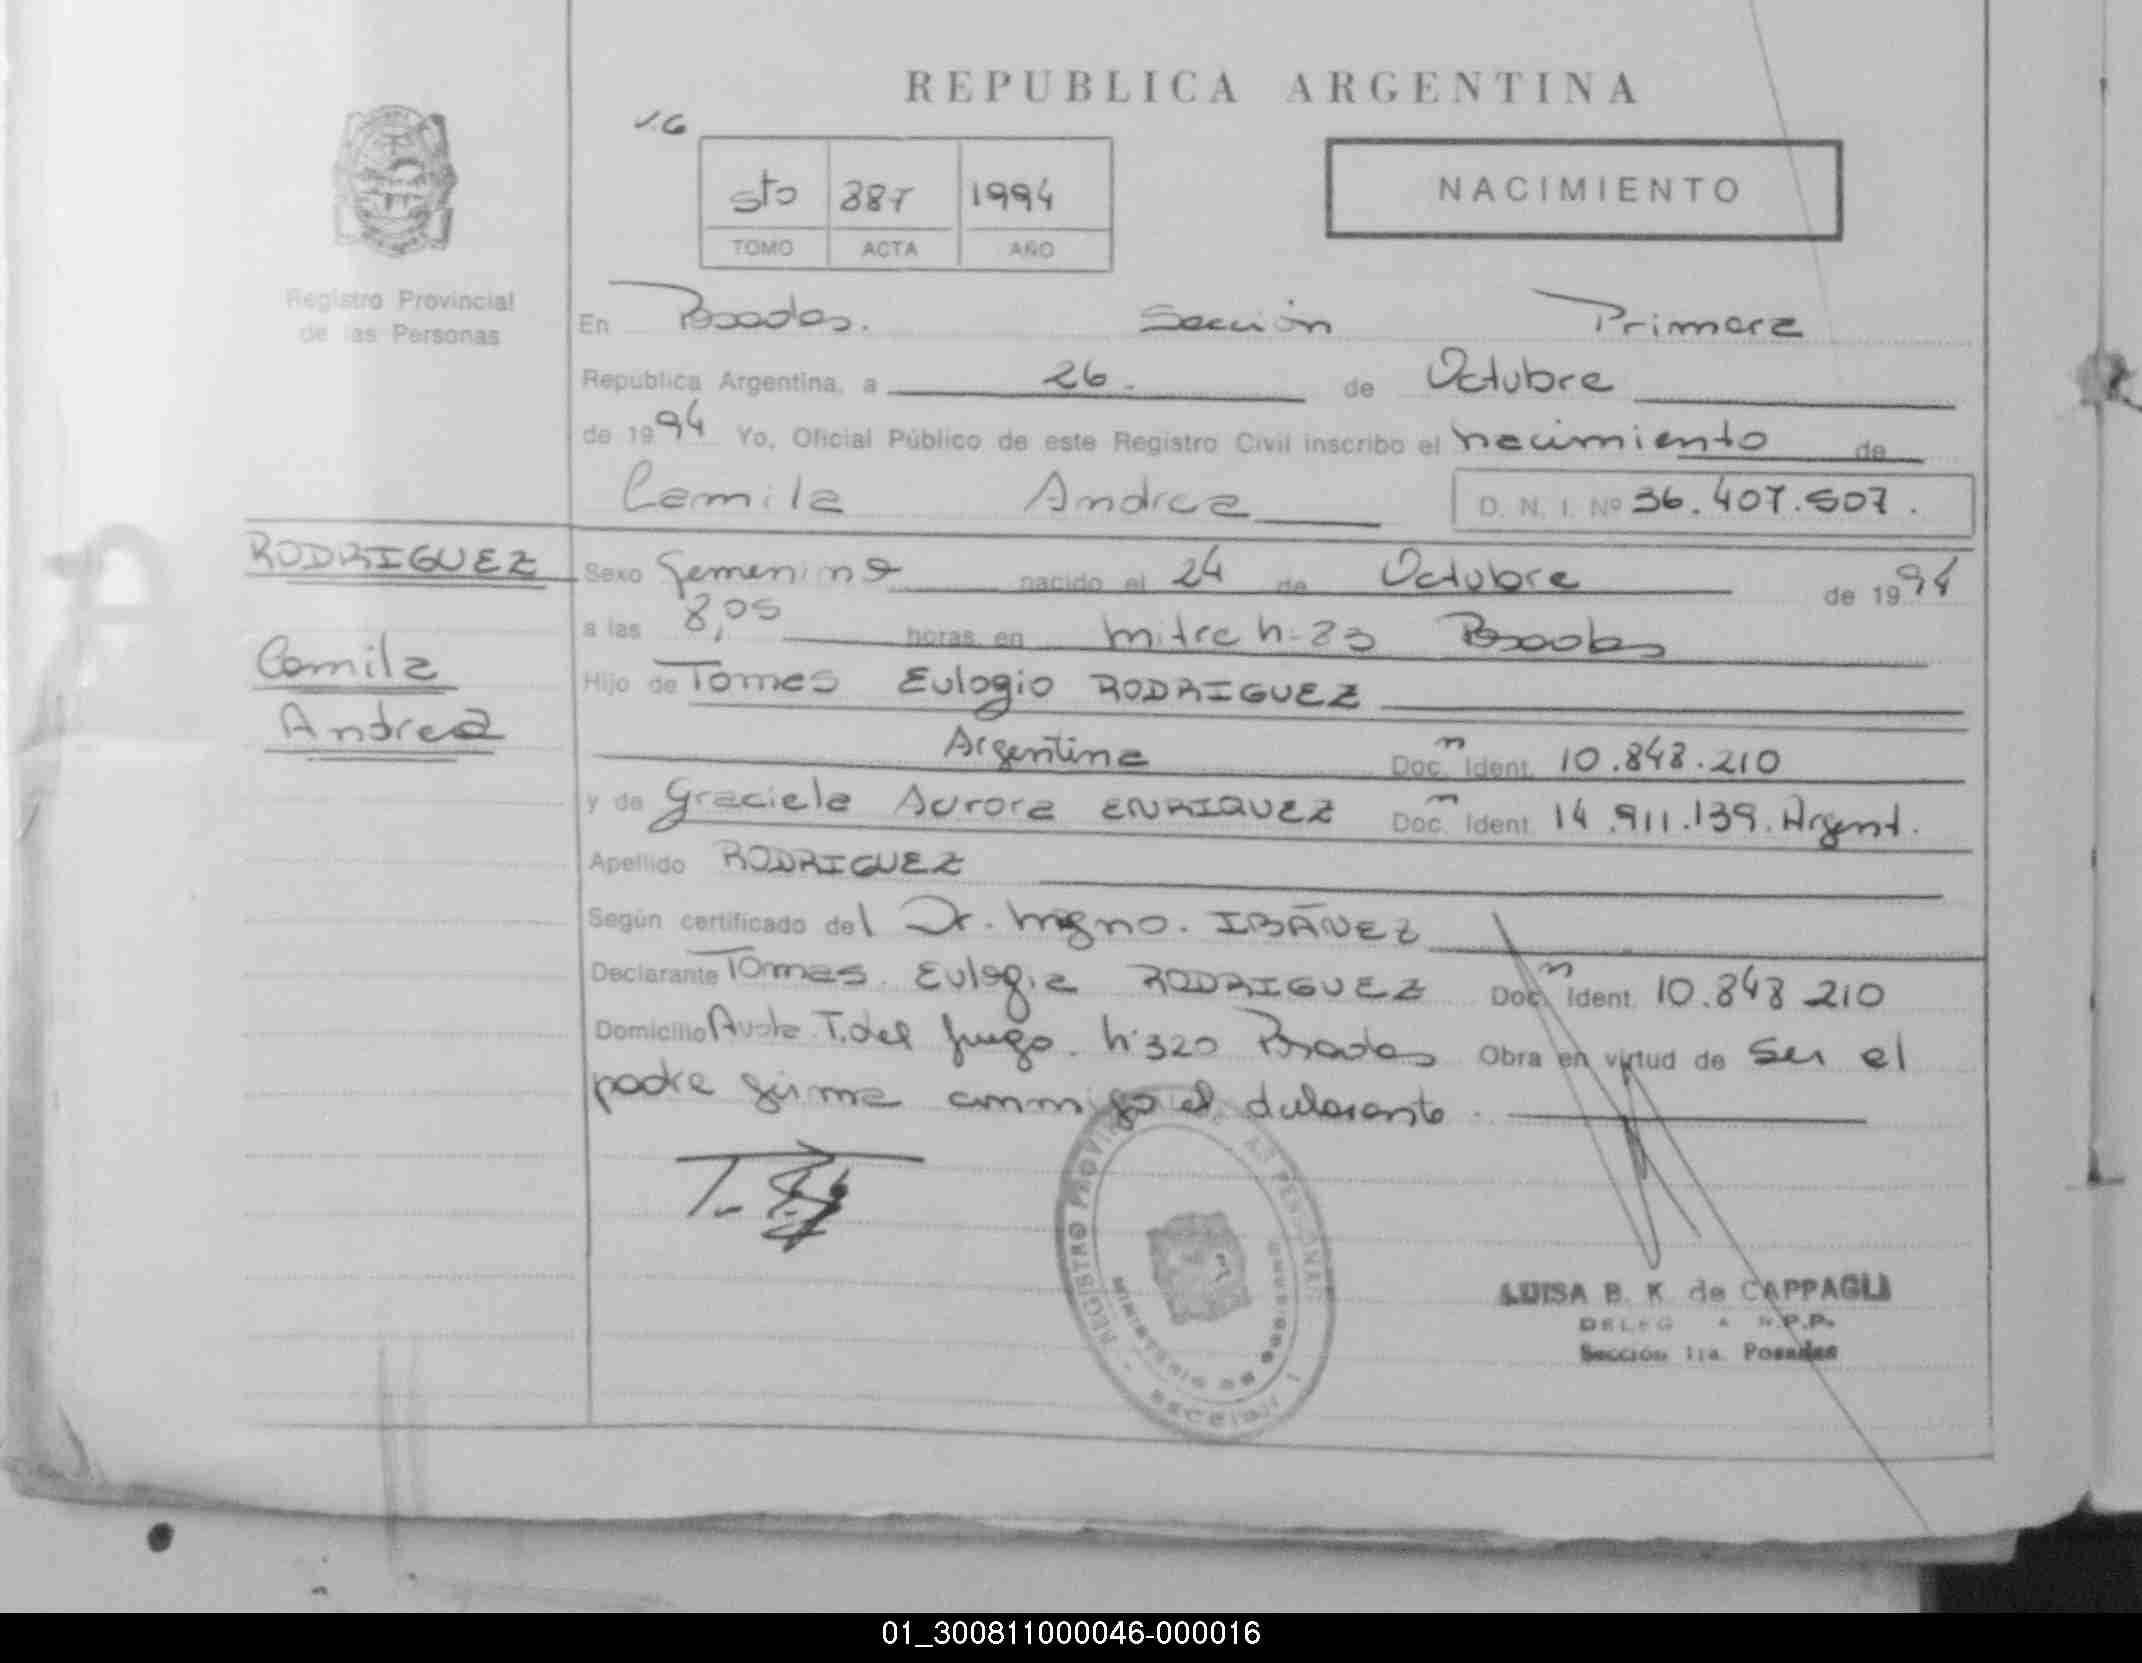 REPUBLICA ARGENTINA
V.G
5to 387 1994
TOMO ACTA AÑO
NACIMIENTO
Registro Provincial
de las Personas
En Posadas. Sección Primera
República Argentina, a 26. de Octubre
de 1994 Yo, Oficial Público de este Registro Civil inscribo el nacimiento de
Camila Andrea D. N. I. Nº 36.407.507.
RODRIGUEZ
Camila
Andrea
Sexo Femenino nacido el 24 de Octubre de 1994
a las 8,05 horas en Mitre Nº 23 Posadas
Hijo de Tomas Eulogio RODRIGUEZ
Argentina Doc. Ident. 10.848.210
y de Graciela Aurora ENRIQUEZ Doc. Ident. 14.911.139. Argent.
Apellido RODRIGUEZ
Según certificado del Dr. Higno. IBAÑEZ
Declarante Tomas Eulogio RODRIGUEZ Doc. Ident. 10.848 210
Domicilio Avda T. del fuego. Nº 320 Posadas Obra en virtud de ser el
padre firma conmigo el declarante.
REGISTRO PROVINCIAL DE LAS PERSONAS
MINISTERIO DE GOBIERNO
SECCION 1
LUISA B. K. de CAPPAGLI
Sección 1ra. Posadas
01_300811000046-000016